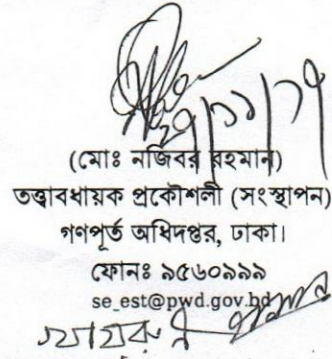 ২৭/১১/১৭
(মোঃ নজিবর রহমান)
তত্ত্বাবধায়ক প্রকৌশলী (সংস্থাপন)
গণপূর্ত অধিদপ্তর, ঢাকা।
ফোনঃ ৯৫৬০৯৯৯
se_est@pwd.gov.bd